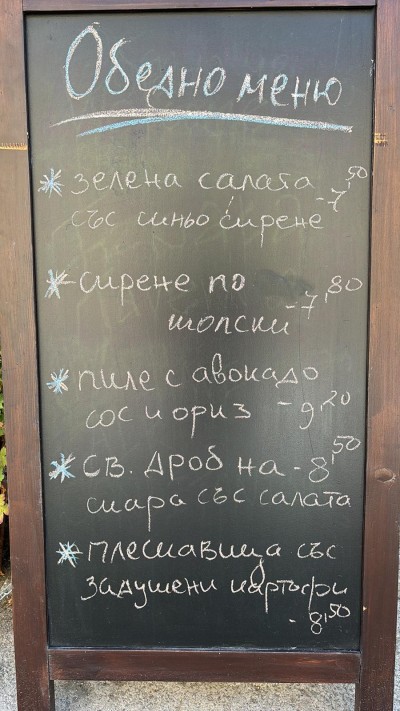 Обедно меню
* зелена салата - 7,50
със синьо сирене
* сирене по
шопски - 7,80
* пиле с авокадо
сос и ориз - 9,20
* св. дроб на - 8,50
скара със салата
* плескавица със
задушени картофи
- 8,50